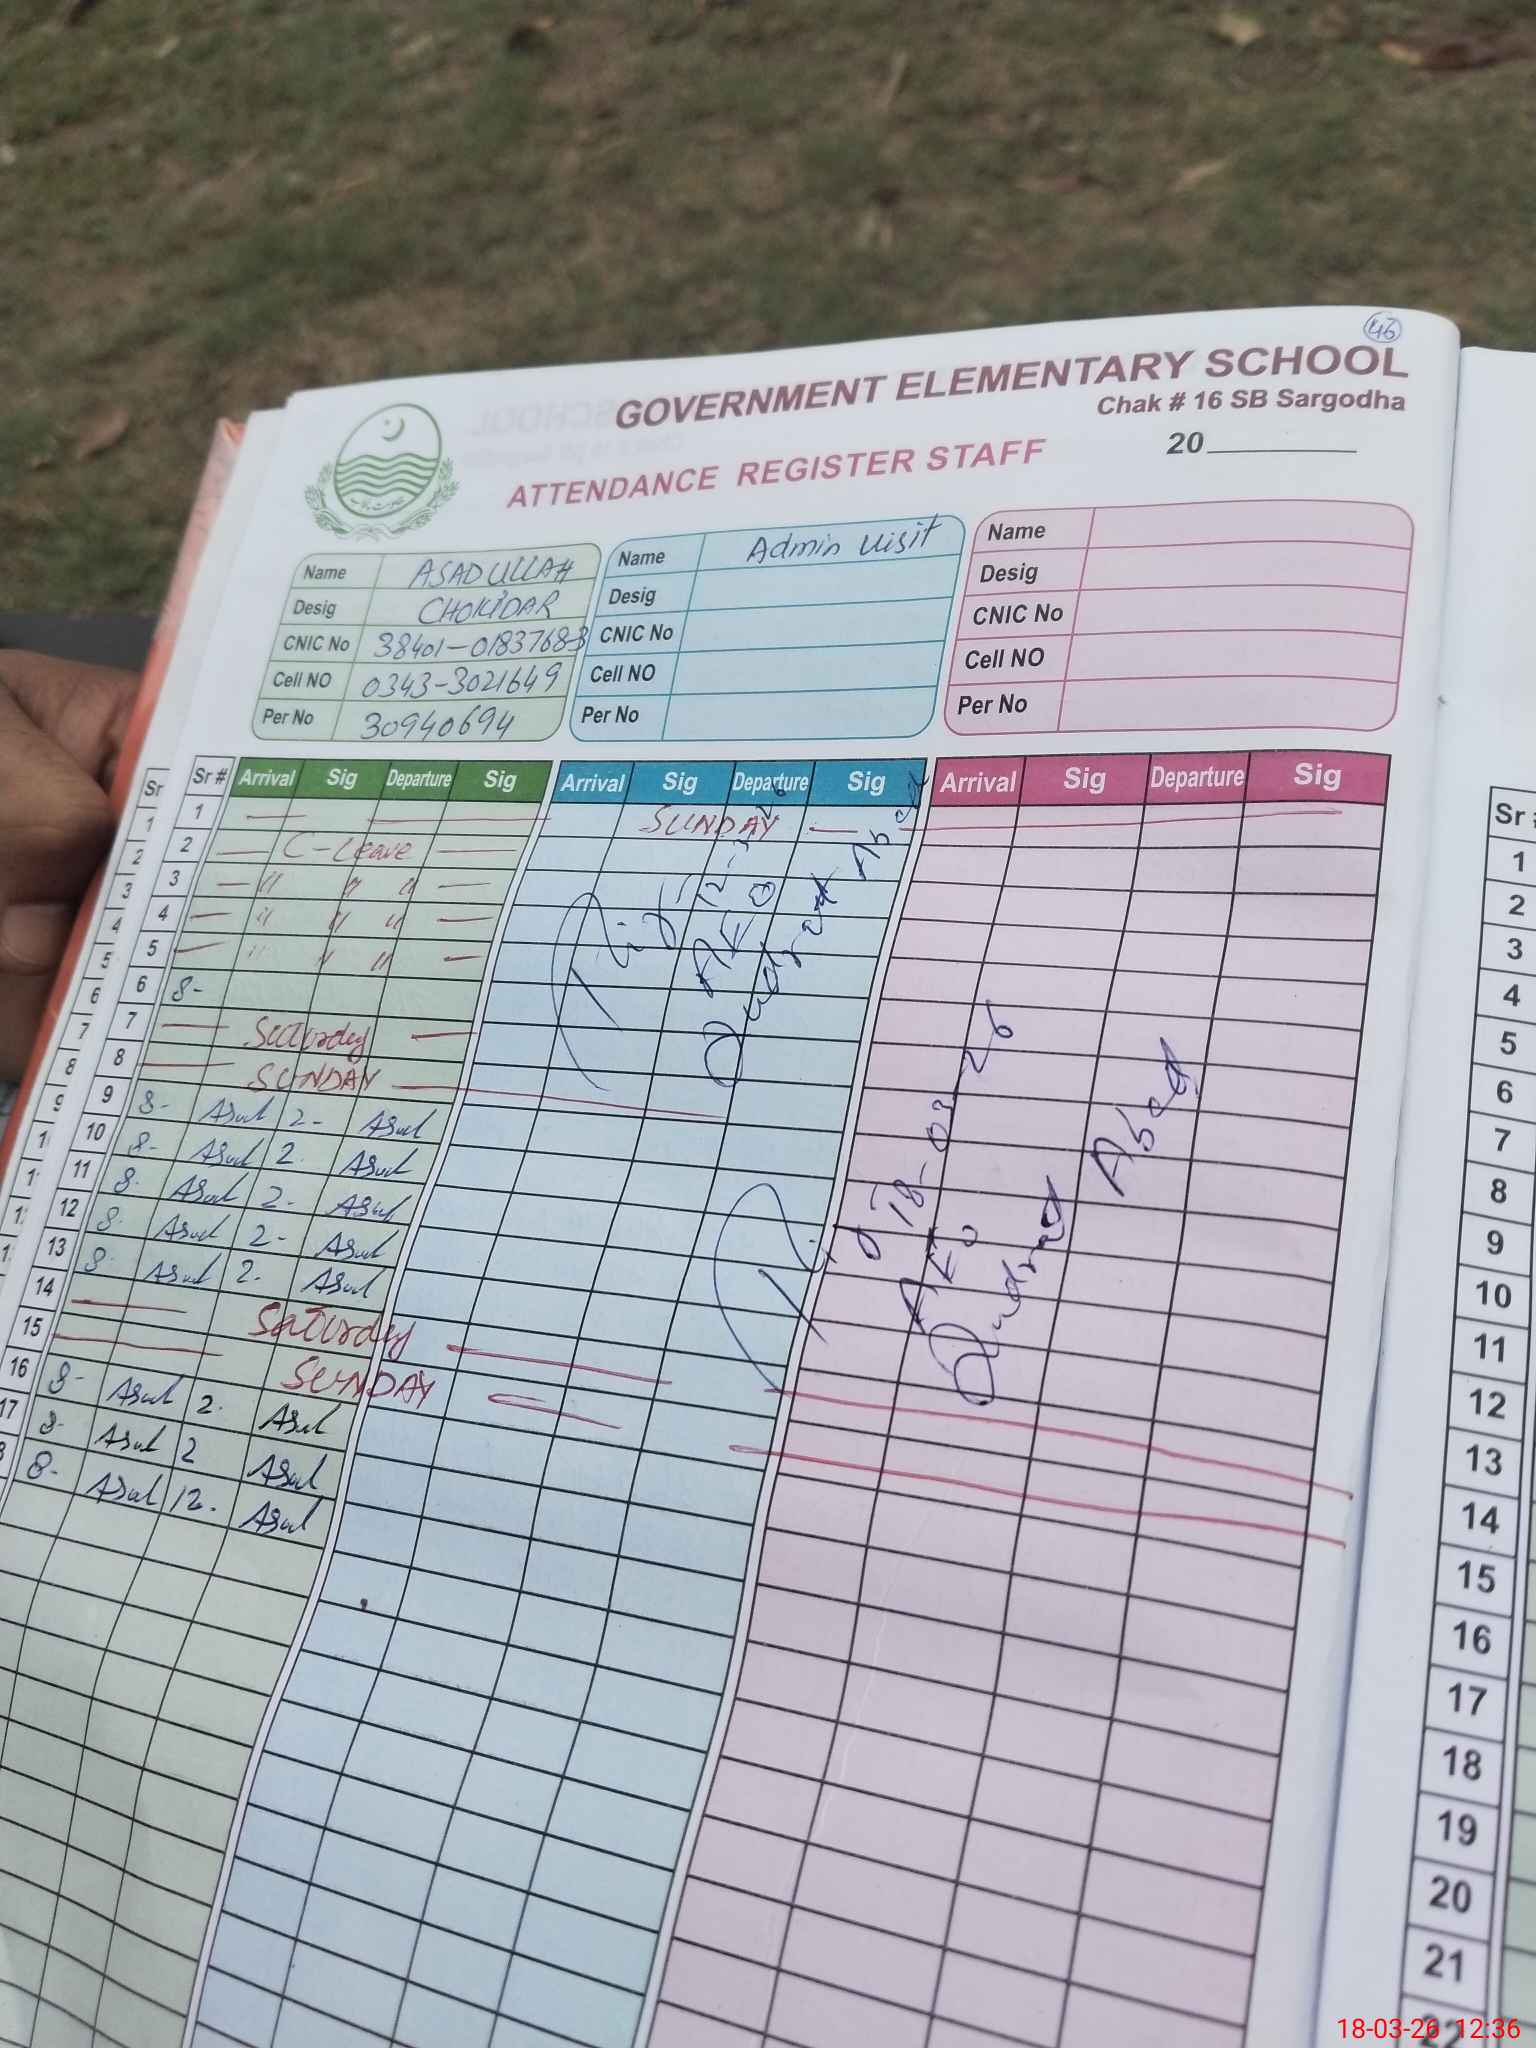 46
GOVERNMENT ELEMENTARY SCHOOL
Chak # 16 SB Sargodha
ATTENDANCE REGISTER STAFF
20
Name ASADULLAH
Desig CHOKIDAR
CNIC No 38401-01837683
Cell NO 0343-3021649
Per No 30940694
Name Admin visit
Desig
CNIC No
Cell NO
Per No
Name
Desig
CNIC No
Cell NO
Per No
Sr # Arrival Sig Departure Sig Arrival Sig Departure Sig Arrival Sig Departure Sig
1 SUNDAY
2 C-Leave
3 " " "
4 " " "
5 " " "
6 8-
7 Saturday
8 SUNDAY
9 8- Asad 2- Asad
10 8- Asad 2. Asad
11 8. Asad 2- Asad
12 8. Asad 2- Asad
13 8. Asad 2. Asad
14 Saturday
15 SUNDAY
16 8- Asad 2. Asad
17 8- Asad 2 Asad
8- Asad 12. Asad
AEO
Qudrat Abad
18-03-26
AEO
Qudrat Abad
Sr
1
2
3
4
5
6
7
8
9
Sr #
1
2
3
4
5
6
7
8
9
10
11
12
13
14
15
16
17
18
19
20
21
22
18-03-26 12:36